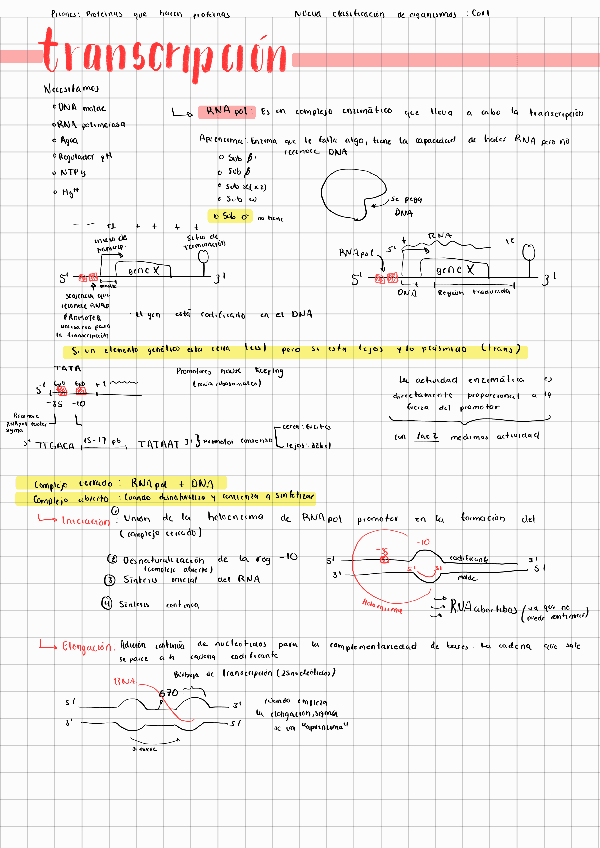 Priones: Proteínas que hacen proteínas
Nueva clasificación de organismos :
transcripción
Necesitamos
DNA molde
RNA polimerasa
Agua
Regulador pH
NTP's
Mg++
RNA pol: Es un complejo enzimático que lleva a cabo la transcripción
Apoenzima: Enzima que le falta algo, tiene la capacidad de hacer RNA pero no
reconoce DNA
Sub β'
Sub β
Sub α(x2)
Sub ω
Sub σ no tiene
se pega
DNA
- - +1 + + + +
Inicio de
transcrip.
Sitio de
terminación
5' gene X 3'
secuencia que
reconoce RNApol
PROMOTER
necesario para
la transcripción
· El gen está codificado en el DNA
RNA
RNA pol 5' +
5' gene X 3'
DNA Región traducida
Si un elemento genético está cerca (cis) pero si está lejos y lo plásmido (trans)
TATA
5' +1
-35 -10
Promotores house keeping
(RNA ribosomales)
La actividad enzimática es
directamente proporcional a la
fuerza del promotor
con lac Z medimos actividad
5' TTGACA 15-17 pb TATAAT 3' Promotor consenso
Complejo cerrado: RNA pol + DNA
Complejo abierto: Cuando desnaturalizo y comienza a sintetizar
Iniciación: ① Unión de la holoenzima de RNA pol promotor en la formación del
(complejo cerrado)
② Desnaturalización de la reg -10
(complejo abierto)
③ Síntesis inicial del RNA
④ Síntesis continua
-35 -10
5' codificante 3'
5' 3'
3' molde 5'
Holoenzima
RNA abortivos (ya que no
puede continuar)
Elongación: Adición continua de nucleótidos para la complementariedad de bases. La cadena que sale
se parece a la cadena codificante
Burbuja de transcripción (25 nucleótidos)
RNA
5' 3'
3' 5'
Cuando empieza
la elongación, sigma
"apoenzima"